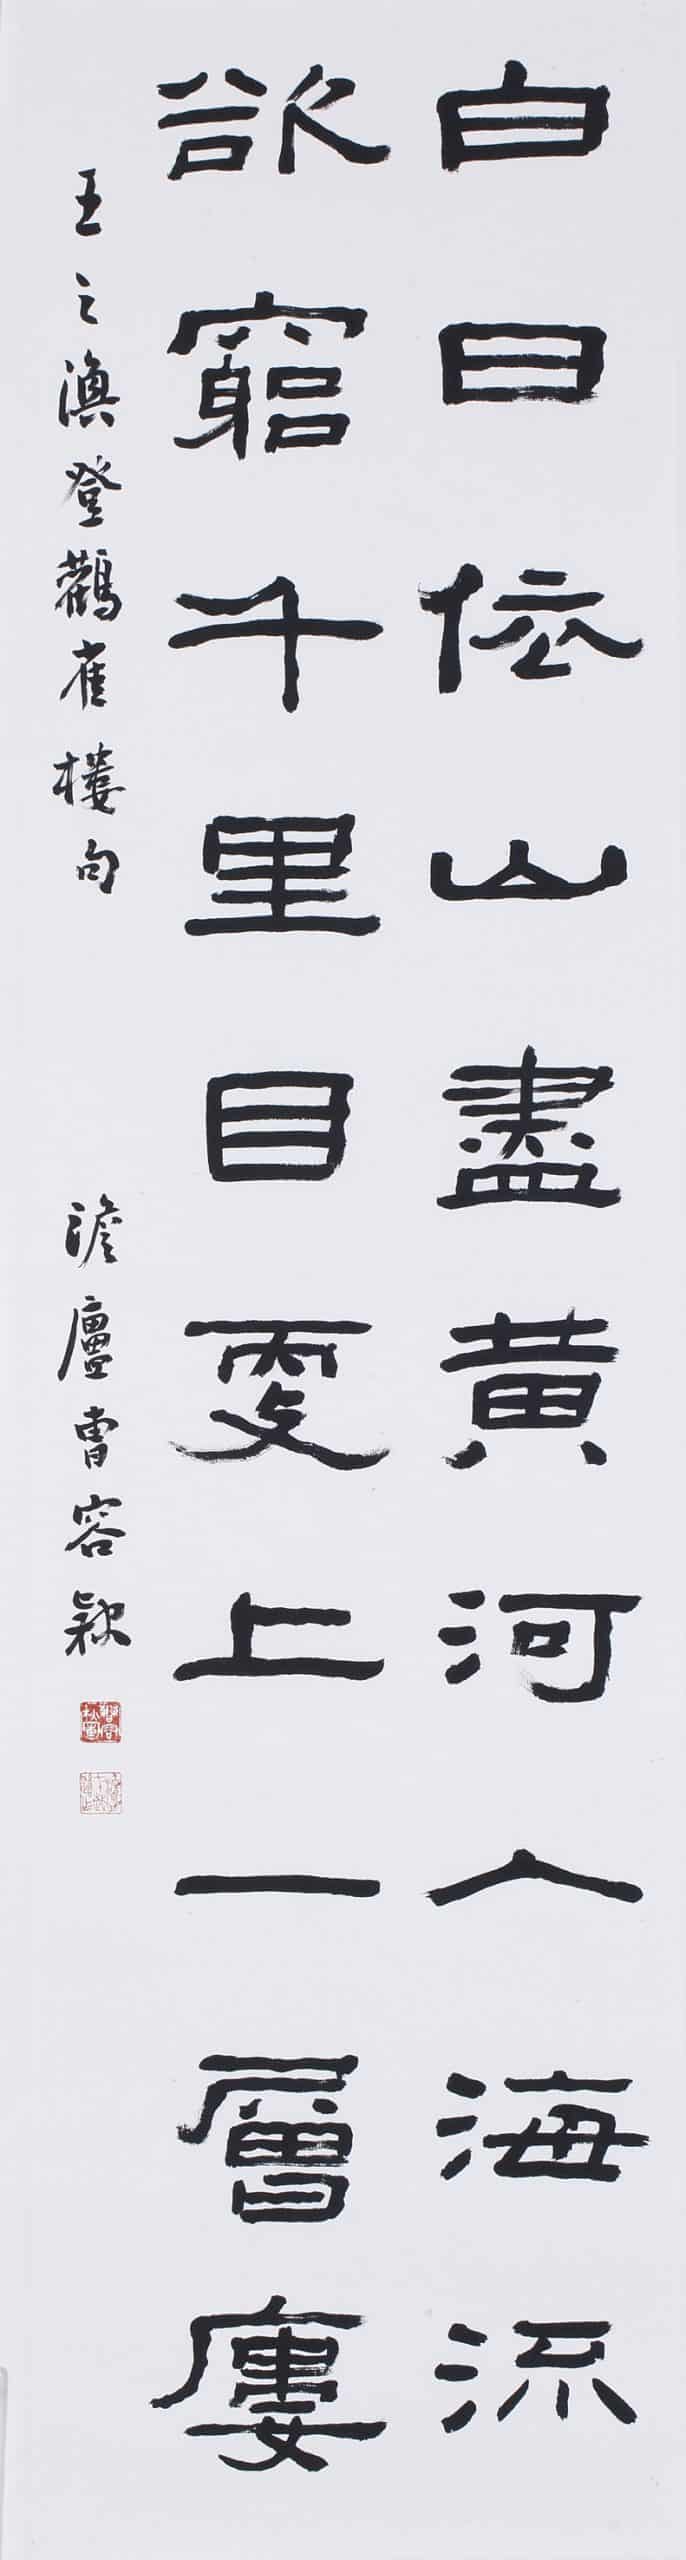 白日依山盡黃河入海流
欲窮千里目更上一層廔
王之渙登鸛雀樓句
澹廬曹容